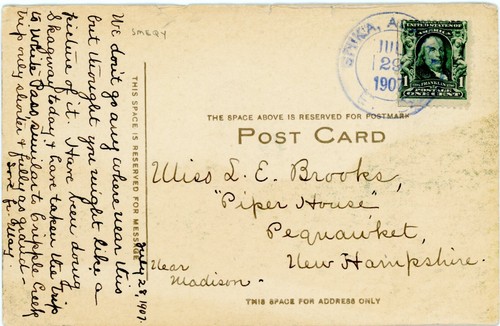 We don't go any where near this
but thought you might like a
picture of it. Have been doing
Skagway today & have taken the trip
to White Pass, similar to Cripple Creek
trip only shorter & fully as grand -
July 28, 1907.
SMEQY
THIS SPACE IS RESERVED FOR MESSAGE
SITKA, A
JUL
29
1907
UNITED STATES OF
AMERICA
FRANKLIN
1
ONE CENT
THE SPACE ABOVE IS RESERVED FOR POSTMARK
POST CARD
Miss L. E. Brooks,
"Piper House"
Pequawket,
New Hampshire.
Near
Madison.
THIS SPACE FOR ADDRESS ONLY